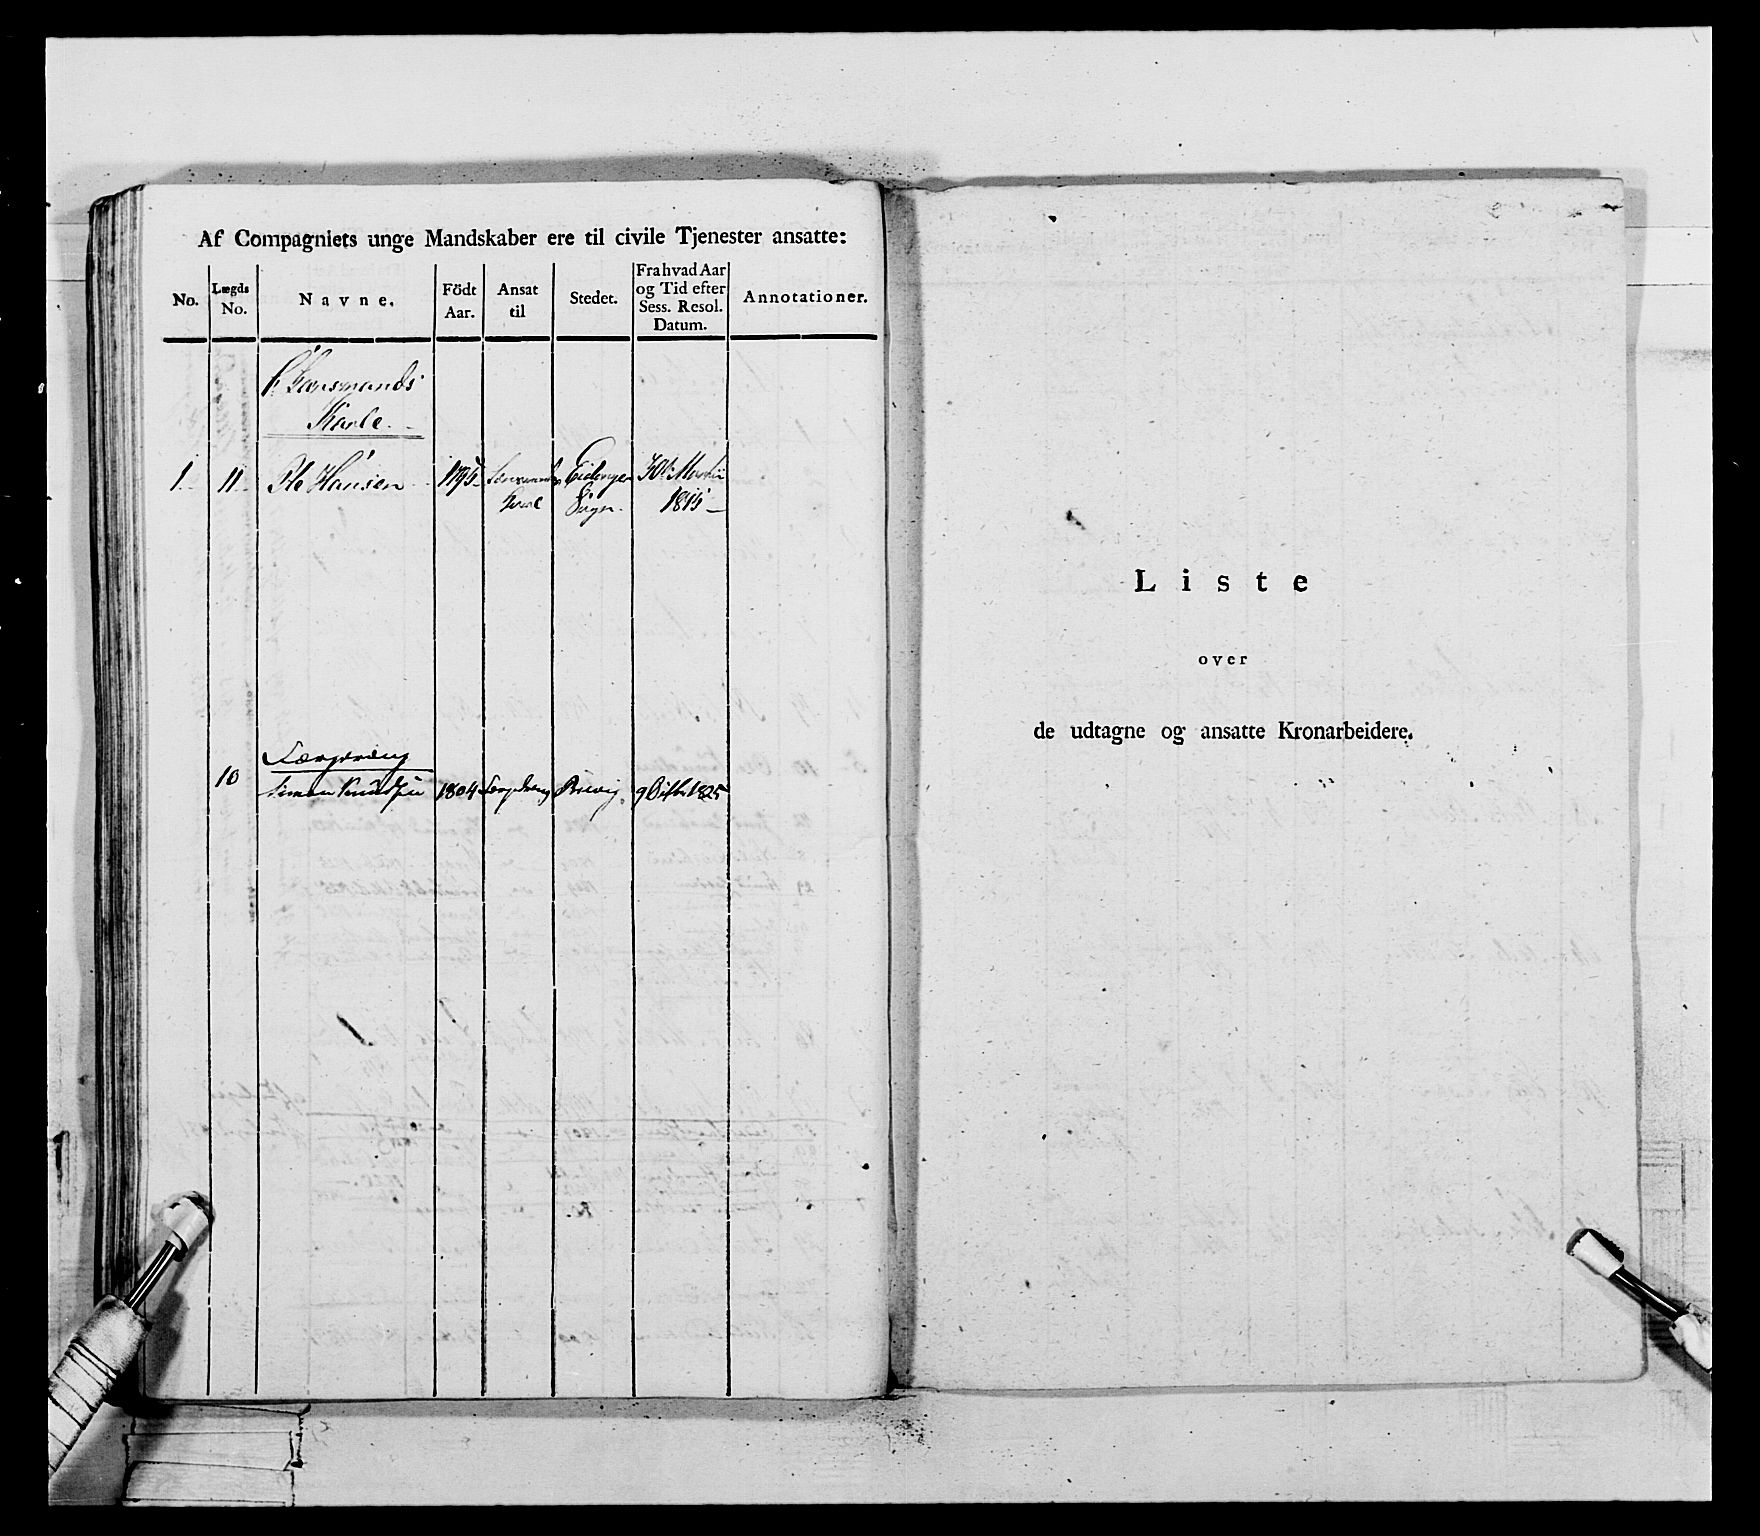 Af Compagniets unge Mandskaber ere til civile Tjenester ansatte:
No. Lægds No. Navne. Födt Aar. Ansat til Stedet. Fra hvad Aar og Tid efter Sess. Resol. Datum. Annotationer.
Lænsmands
Karle.
1 11 Ole Hansen 1795 Lænsmands Karl Eidanger Sogn 30te Martii 1815
Færgedreng
10 Simon Knudsen 1804 Færgedreng Brevig 9 Octbr 1825
Liste
over
de udtagne og ansatte Kronarbeidere.